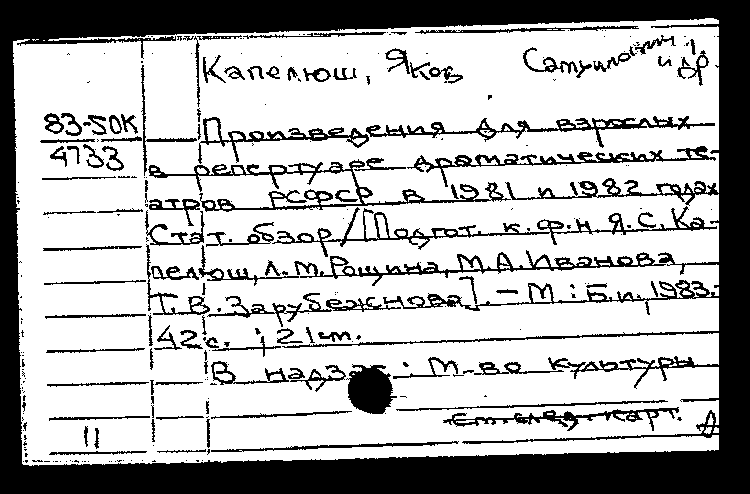 Капелюш, Яков Самуилович и др.
83-50К
4733
Произведения для взрослых
в репертуаре драматических те-
атров РСФСР в 1981 и 1982 годах
Стат. обзор/[Подгот. к.ф.н Я.С. Ка-
пелюш, Л.М. Рощина, М.А. Иванова,
Т.В. Зарубежнова]. - М.: Б.и., 1983.-
42с. ; 21см.
В надзаг: М-во культуры
См. след. карт.
11